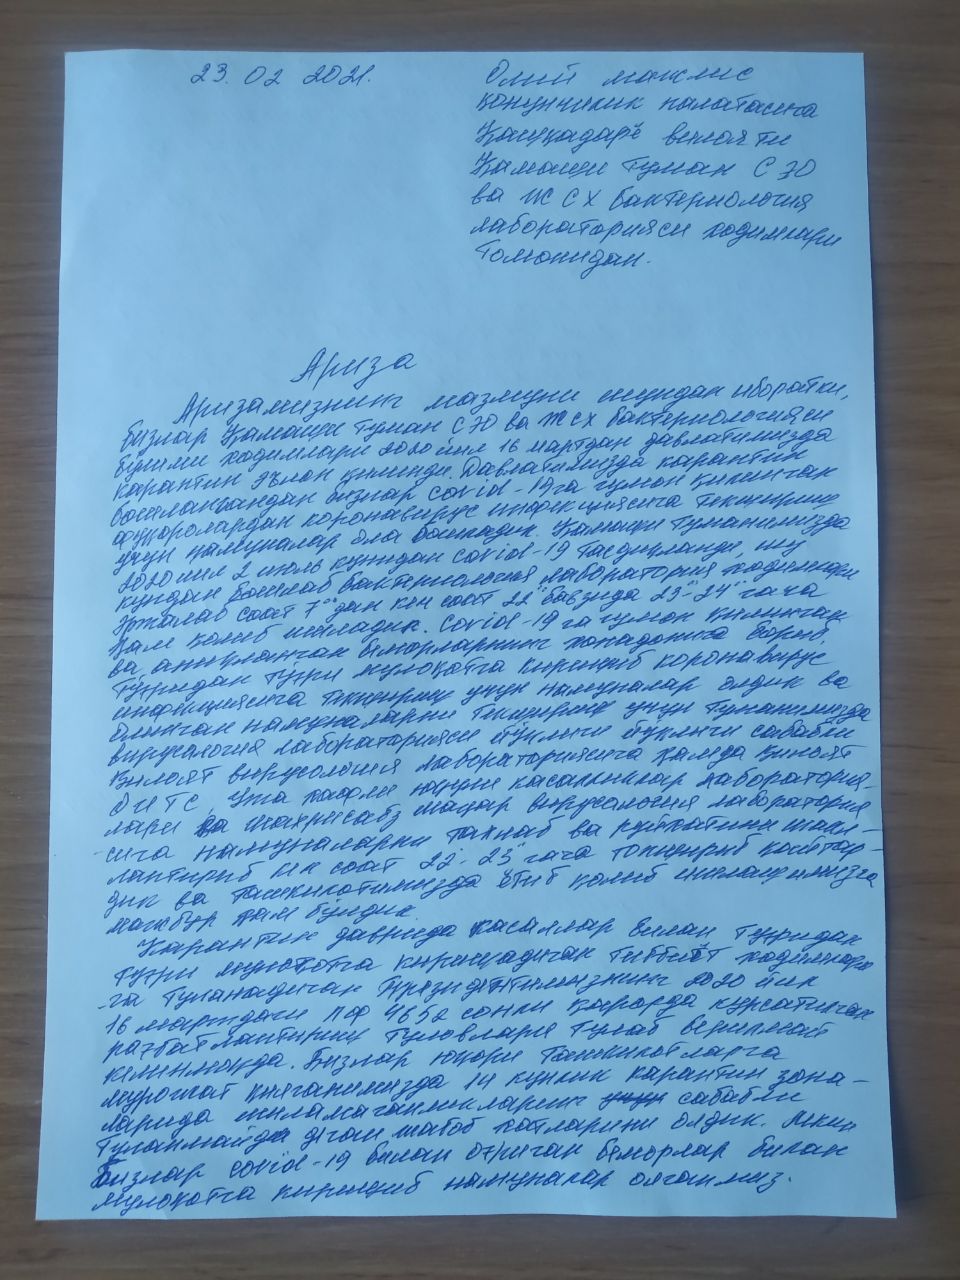 23. 02 2021.
Олий мажлис
қонунчилик палатасига
Қашқадарё вилояти
Қамаши туман СЭО
ва ЖСХ бактериология
лабораторияси ходимлари
томонидан.
Ариза
Аризамизнинг мазмуни шундан иборатки,
бизлар Қамаши туман СЭО ва ЖСХ бактериологияси
бўлими ходимлари 2020 йил 16 мартдан давлатимизда
карантин эълон қилинди. Давлатимизда карантин
бошлангандан бизлар covid-19 га гумон қилинган
фуқоролардан коронавирус инфекциясига текшириш
учун намуналар ола бошладик. Қамаши туманимизда
2020 йил 2 июль кунидан covid-19 тасдиқланди, шу
кундан бошлаб бактериология лаборатория ходимлари
эрталаб соат 7⁰⁰ дан кеч соат 22⁰⁰ баъзида 23-24⁰⁰ гача
ҳам қолиб ишладик. Covid-19 га гумон қилинган
ва аниқланган беморларнинг хонадонига бориб
тўғридан тўғри мулоқотга киришиб коронавирус
инфекциясига текшириш учун намуналар олдик ва
олинган намуналарни текшириш учун туманимизда
вирусология лабораторияси йўқлиги йўқлиги сабабли
Вилоят вирусология лабораториясига ҳамда вилоят
ОИТС, ўта хафли юқумли касалликлар лаборатория-
лари ва шахрисабз шаҳар вирусология лаборатория
-сига намуналарни ташлаб ва
лантириб кеч соат 22-23⁰⁰ гача топшириб қайтар-
дик ва ташкилотимизда ётиб қолиб ишлашимизга
мажбур ҳам бўлдик.
Карантин даврида касаллар билан тўғридан
тўғри мулоқотга киришадиган тиббиёт ходимлари
-га тўланадиган Президентимизнинг 2020 йил
16 мартдаги ПФ 4652 сонли қарорда кўрсатилган
рағбатлантириш тўловлари тўлаб берилмай
келинмоқда. Бизлар юқори ташкилотларга
мурожат қилганимизда 14 кунлик карантин зона-
ларида ишламаганликларинг сабабли
тўланмайди деган жавоб хатларини олдик. Лекин
бизлар covid-19 билан оғриган беморлар билан
мулоқотга киришиб намуналар олганмиз.